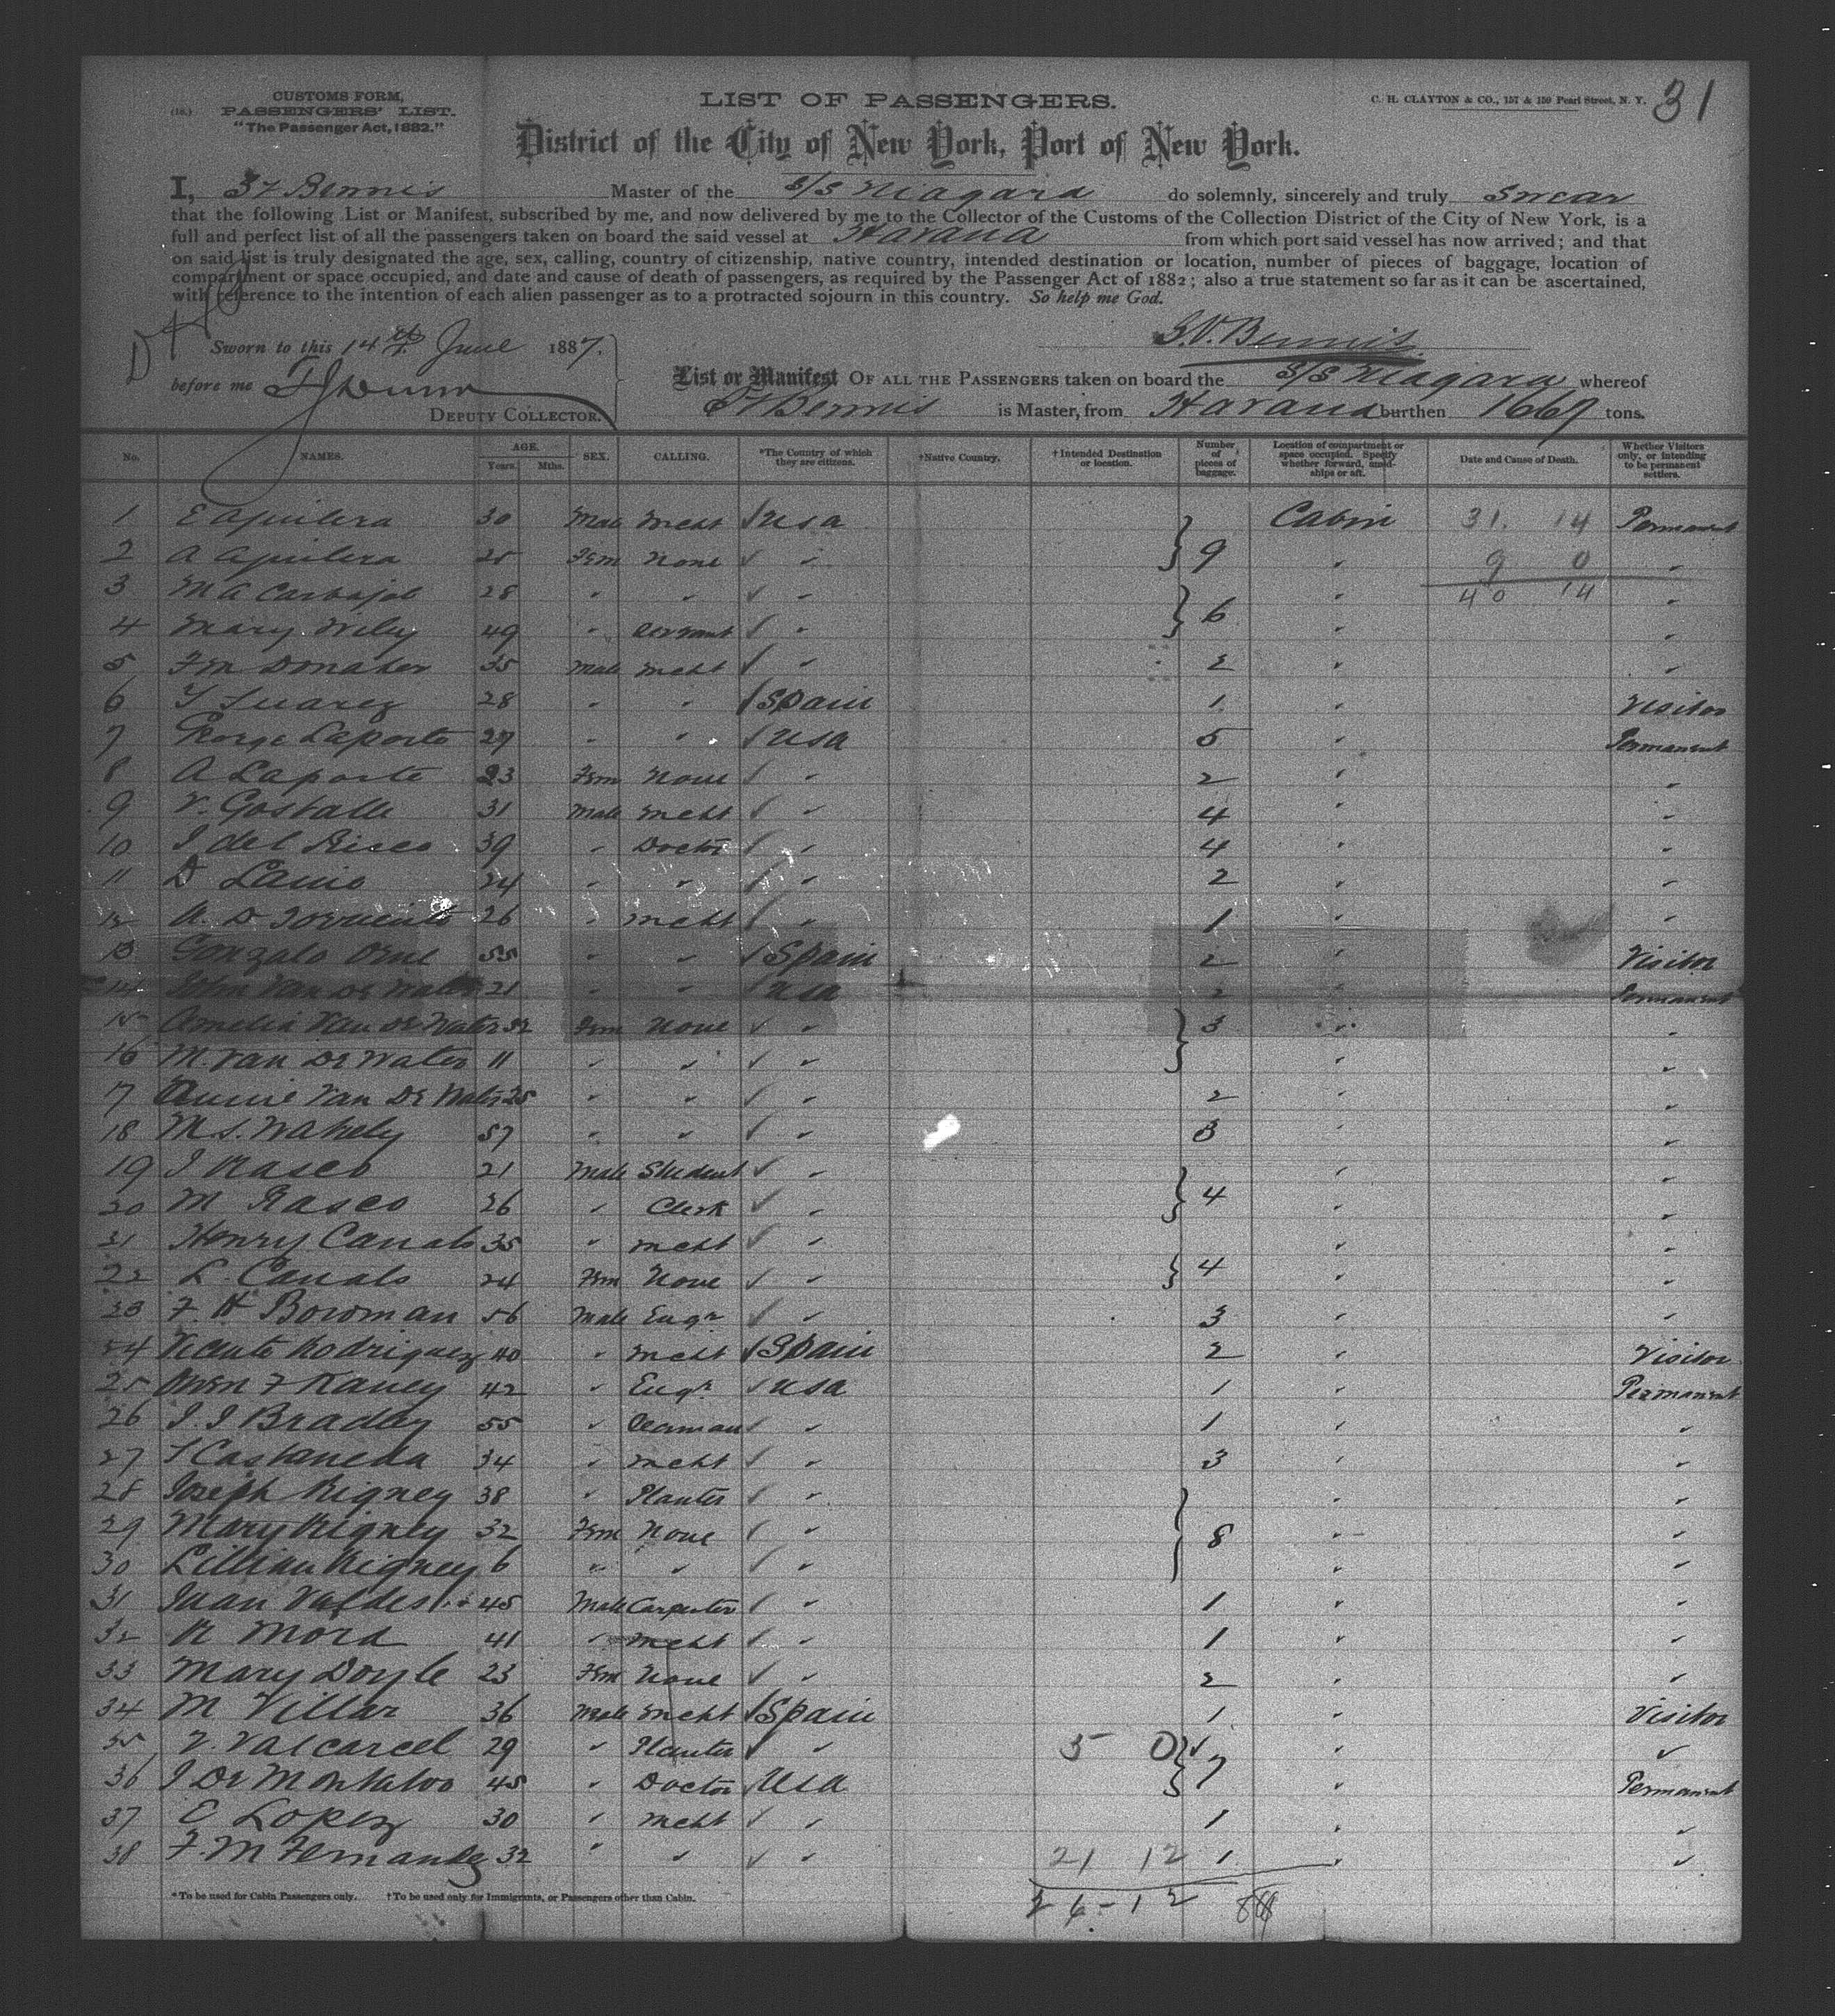 CUSTOMS FORM,
(18.) PASSENGERS' LIST.
"The Passenger Act, 1882."
LIST OF PASSENGERS.
C. H. CLAYTON & CO., 157 & 159 Pearl Street, N. Y.
31
District of the City of New York, Port of New York.
I, Bennis Master of the S/S Niagara do solemnly, sincerely and truly Swear
that the following List or Manifest, subscribed by me, and now delivered by me to the Collector of the Customs of the Collection District of the City of New York, is a
full and perfect list of all the passengers taken on board the said vessel at Havana from which port said vessel has now arrived; and that
on said list is truly designated the age, sex, calling, country of citizenship, native country, intended destination or location, number of pieces of baggage, location of
compartment or space occupied, and date and cause of death of passengers, as required by the Passenger Act of 1882; also a true statement so far as it can be ascertained,
with reference to the intention of each alien passenger as to a protracted sojourn in this country. So help me God.
Bennis
Sworn to this 14th June 1887.
before me
DEPUTY COLLECTOR.
List or Manifest OF ALL THE PASSENGERS taken on board the S/S Niagara whereof
Bennis is Master, from Havana burthen 1667 tons.
No. NAMES. AGE. Years. Mths. SEX. CALLING. *The Country of which they are citizens. †Native Country. †Intended Destination or location. Number of pieces of baggage. Location of compartment or space occupied. Specify whether forward, amidships or aft. Date and Cause of Death. Whether Visitors only, or intending to be permanent settlers.
1 E Aguilera 30 Male Mcht ✓ USA Cabin 31. 14 Permanent
2 A Aguilera 25 Fem None ✓ " 9 " 9 0 "
3 M A Carbajal 28 " " ✓ " " 40 14 "
4 Mary Wiley 49 " Servant ✓ " 6 " "
5 35 Male Mcht ✓ " 2 " "
6 Y Suarez 28 " " ✓ Spain 1 " Visitor
7 George Laporte 27 " " ✓ USA 5 " Permanent
8 A Laporte 23 Fem None ✓ " 2 " "
9 V. 31 Male Mcht ✓ " 4 " "
10 J del Risco 39 " Doctor ✓ " 4 " "
11 D 24 " " ✓ " 2 " "
12 26 " Mcht ✓ " 1 " "
13 Gonzalo 55 " " ✓ Spain 2 " Visitor
14 John Van De Water 21 " " ✓ USA 2 " Permanent
15 Amelia Van De Water 32 Fem None ✓ " 3 " "
16 M. Van De Water 11 " " ✓ " " "
17 Annie Van De Water 25 " " ✓ " 2 " "
18 M. S. Wakely 57 " " ✓ " 3 " "
19 J Rasco 21 Male Student ✓ " " "
20 M Rasco 26 " Clerk ✓ " 4 " "
21 Henry Canals 35 " Mcht ✓ " " "
22 L. Canals 24 Fem None ✓ " 4 " "
23 F. H Bowman 56 Male Engr ✓ " 3 " "
24 Vicente Rodriguez 40 " Mcht ✓ Spain 2 " Visitor
25 Owen F Raney 42 " Engr ✓ USA 1 " Permanent
26 J. J Bradley 55 " Seaman ✓ " 1 " "
27 Castaneda 34 " Mcht ✓ " 3 " "
28 Joseph Rigney 38 " Planter ✓ " " "
29 Mary Rigney 32 Fem None ✓ " 8 " "
30 Lillian Rigney 6 " " ✓ " " "
31 Juan Valdes 45 Male Carpenter ✓ " 1 " "
32 R Mora 41 " Mcht ✓ " 1 " "
33 Mary Doyle 23 Fem None ✓ " 2 " "
34 M Villar 36 Male Mcht ✓ Spain 1 " Visitor
35 F. Valcarcel 29 " Planter ✓ " 5 0 ✓ " "
36 J De Montalvo 45 " Doctor ✓ USA 7 " Permanent
37 E Lopez 30 " Mcht ✓ " 1 " "
38 F. M Fernandez 32 " " ✓ " 21 12 1 " "
26-12
* To be used for Cabin Passengers only. † To be used only for Immigrants, or Passengers other than Cabin.